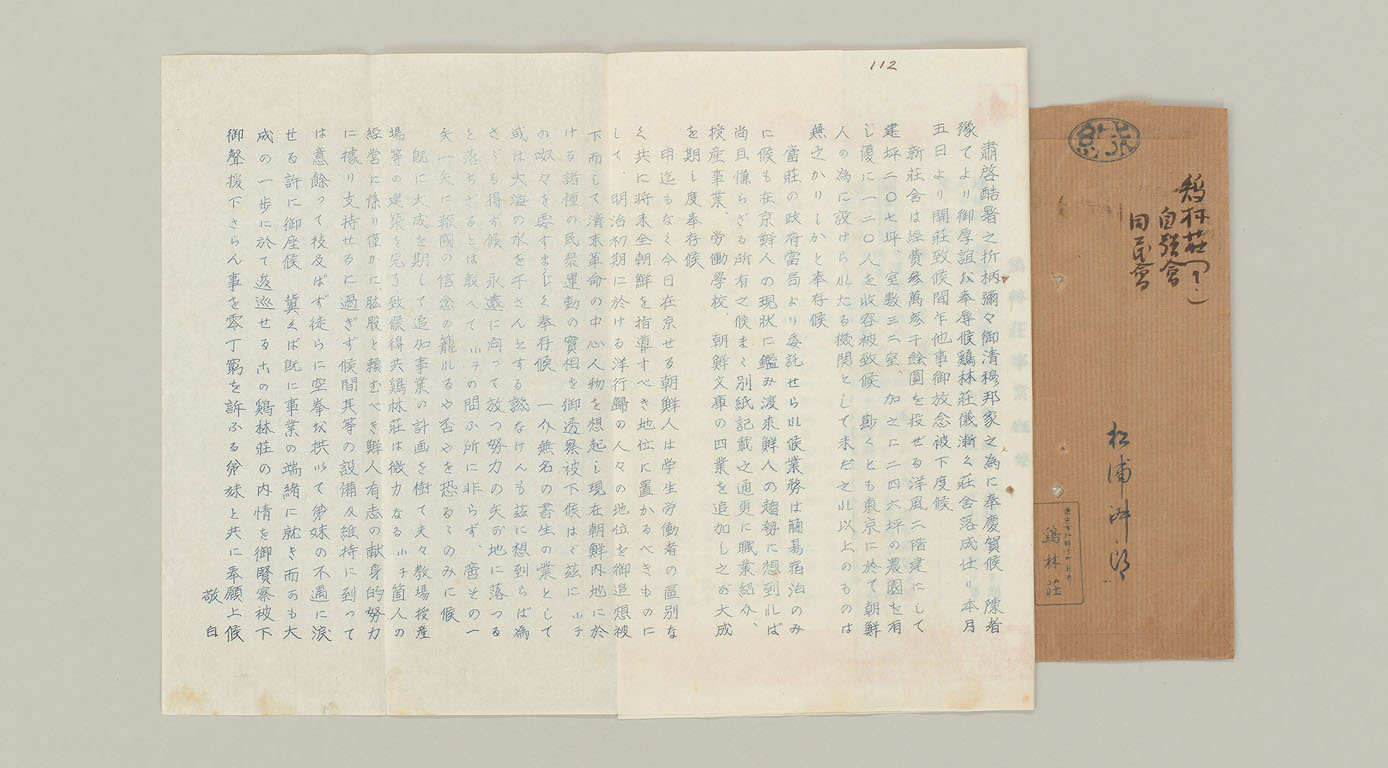 112
肅啓酷暑之折柄彌々御清穆邦家之為に奉慶賀候 陳者
豫てより御厚誼お奉辱候鷄林莊儀漸く莊舍落成仕り本月
五日より開莊致候間乍他事御放念被下度候
新莊舍は經費參萬參千餘圓を投せる洋風二階建にして
建坪二〇七坪、室數三二室、加之に二四六坪の農園を有
し優に一二〇人を收容被致候 尠くとも東京に於て朝鮮
人の為に設けられたる機関として未だ之れ以上のものは
無之かりしかと奉存候
當莊の政府當局より委託せられ候業務は簡易宿泊のみ
に候も在京鮮人の現狀に鑑み渡来鮮人の趨勢に想到れば
尚且慊らざる所有之候まゝ別紙記載之通更に職業紹介、
授産事業、労働學校、朝鮮文庫の四業を追加し之が大成
を期し度奉存候
申迄もなく今日在京せる朝鮮人は学生労働者の區別な
く共に將来全朝鮮を指導すべき地位に置かるべきものに
して、明治初期に於ける洋行歸の人々の地位を御追想被
下而して清末革命の中心人物を想起し現在朝鮮内地に於
ける諸種の民衆運動の實相を御透察被下候はゞ茲に小子
の呶々を要すまじく奉存候 一介無名の書生の業として
或は大海の水を干さんとする譏なけんも茲に想到らば為
さゞる得ず候 永遠に向って放つ努力の矢が地に落つる
と落ちざるとは敢へて小子の問ふ所に非らず、啻その一
矢一矢に報國の信念の籠れるや否やを恐るゝのみに候
既に大成を期して追加事業の計画を樹て夫々教場授産
場等の建築を完了致候得共鷄林莊は微力なる小子箇人の
經営に係り僅かに肱股と賴むべき鮮人有志の献身的努力
に據り支持せるに過ぎず候間其等の設備及維持に到って
は意餘って技及ばず徒らに空拳お拱いて弟妹の不遇に涙
せる許に御座候 冀くば既に事業の端緒に就き而かも大
成の一歩に於て逡巡せる本の鷄林莊の内情を御賢察被下
御聲援下さらん事を零丁窮を訴ふる弟妹と共に奉願上候
敬白
鷄林莊
自強會
同民會
鷄林莊